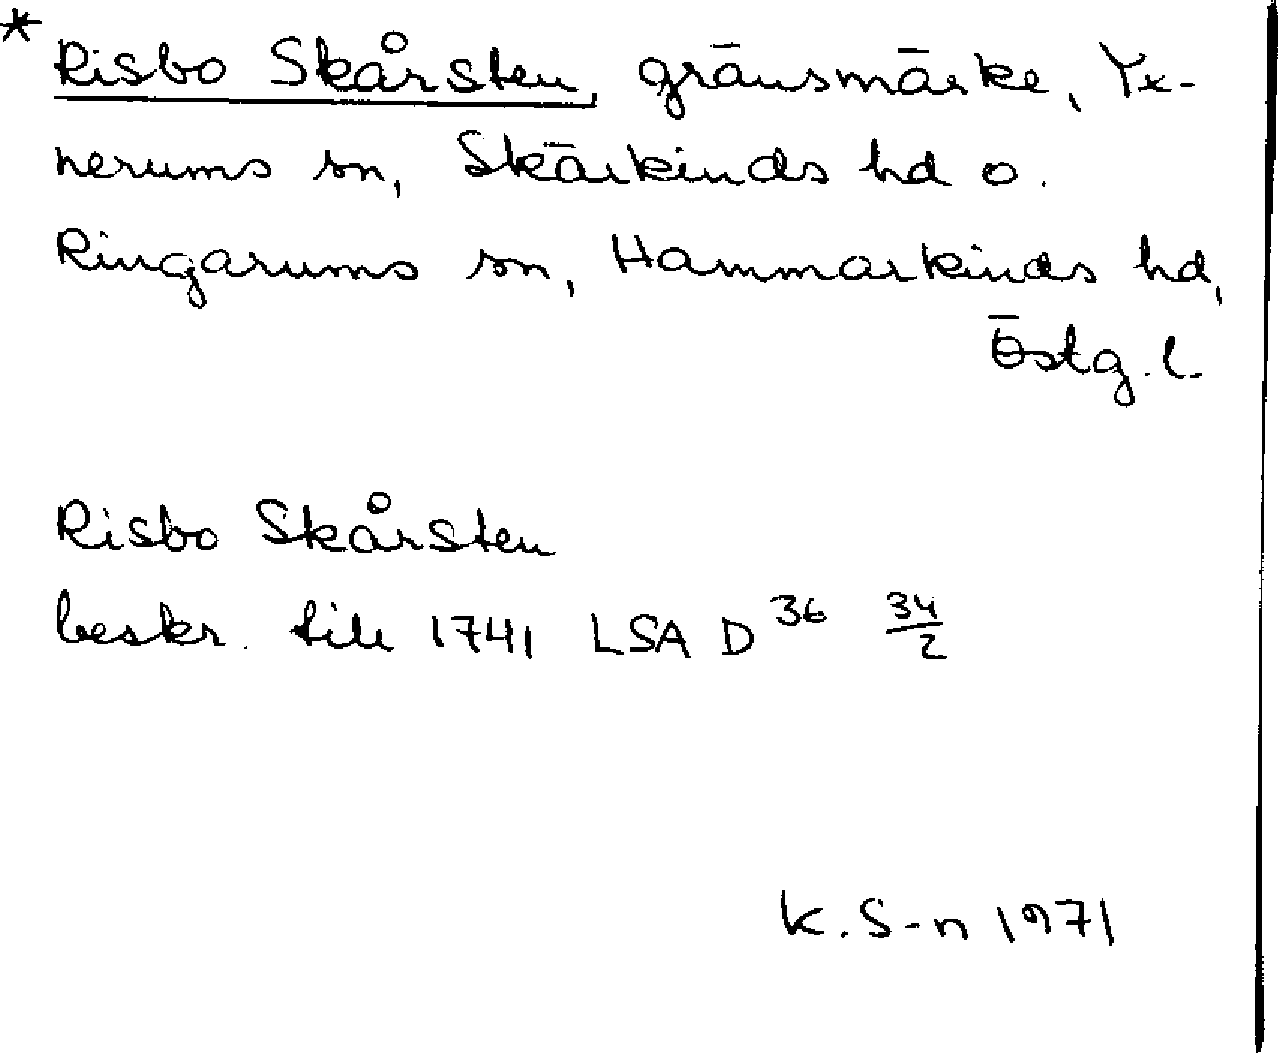 * Risbo Skårsten, gränsmärke, Yx-
nerums sn, Skärkinds hd o.
Ringarums sn, Hammarkinds hd,
Östg. l.
Risbo Skårsten
beskr. till 1741 LSA D 36 34/2
K. S-n 1971